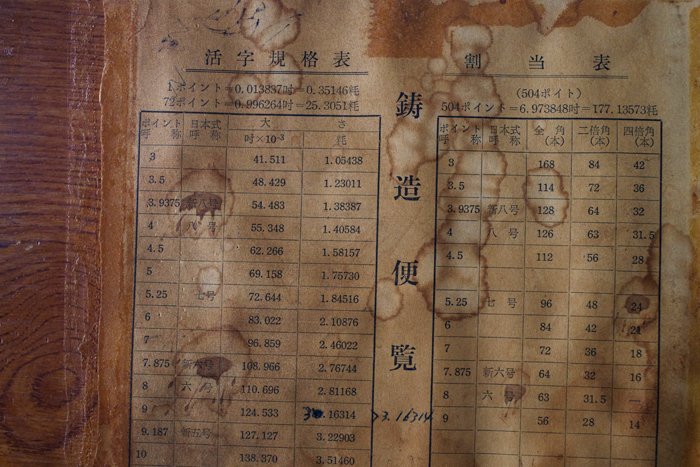 活字規格表
1ポイント=0.013837吋=0.35146粍
72ポイント=0.996264吋=25.3051粍
ポイント呼称 日本式呼称 大さ
吋×10⁻³ 粍
3 41.511 1.05438
3.5 48.429 1.23011
3.9375 新八号 54.483 1.38387
4 八号 55.348 1.40584
4.5 62.266 1.58157
5 69.158 1.75730
5.25 七号 72.644 1.84516
6 83.022 2.10876
7 96.859 2.46022
7.875 新六号 108.966 2.76744
8 六号 110.696 2.81168
9 124.533 3.16314 >3.16314
9.187 新五号 127.127 3.22903
10 138.370 3.51460
鋳造便覧
割当表
(504ポイト)
504ポイント=6.973848吋=177.13573粍
ポイント呼称 日本式呼称 全角(本) 二倍角(本) 四倍角(本)
3 168 84 42
3.5 114 72 36
3.9375 新八号 128 64 32
4 八号 126 63 31.5
4.5 112 56 28
5.25 七号 96 48 24
6 84 42 21
7 72 36 18
7.875 新六号 64 32 16
8 六号 63 31.5
9 56 28 14